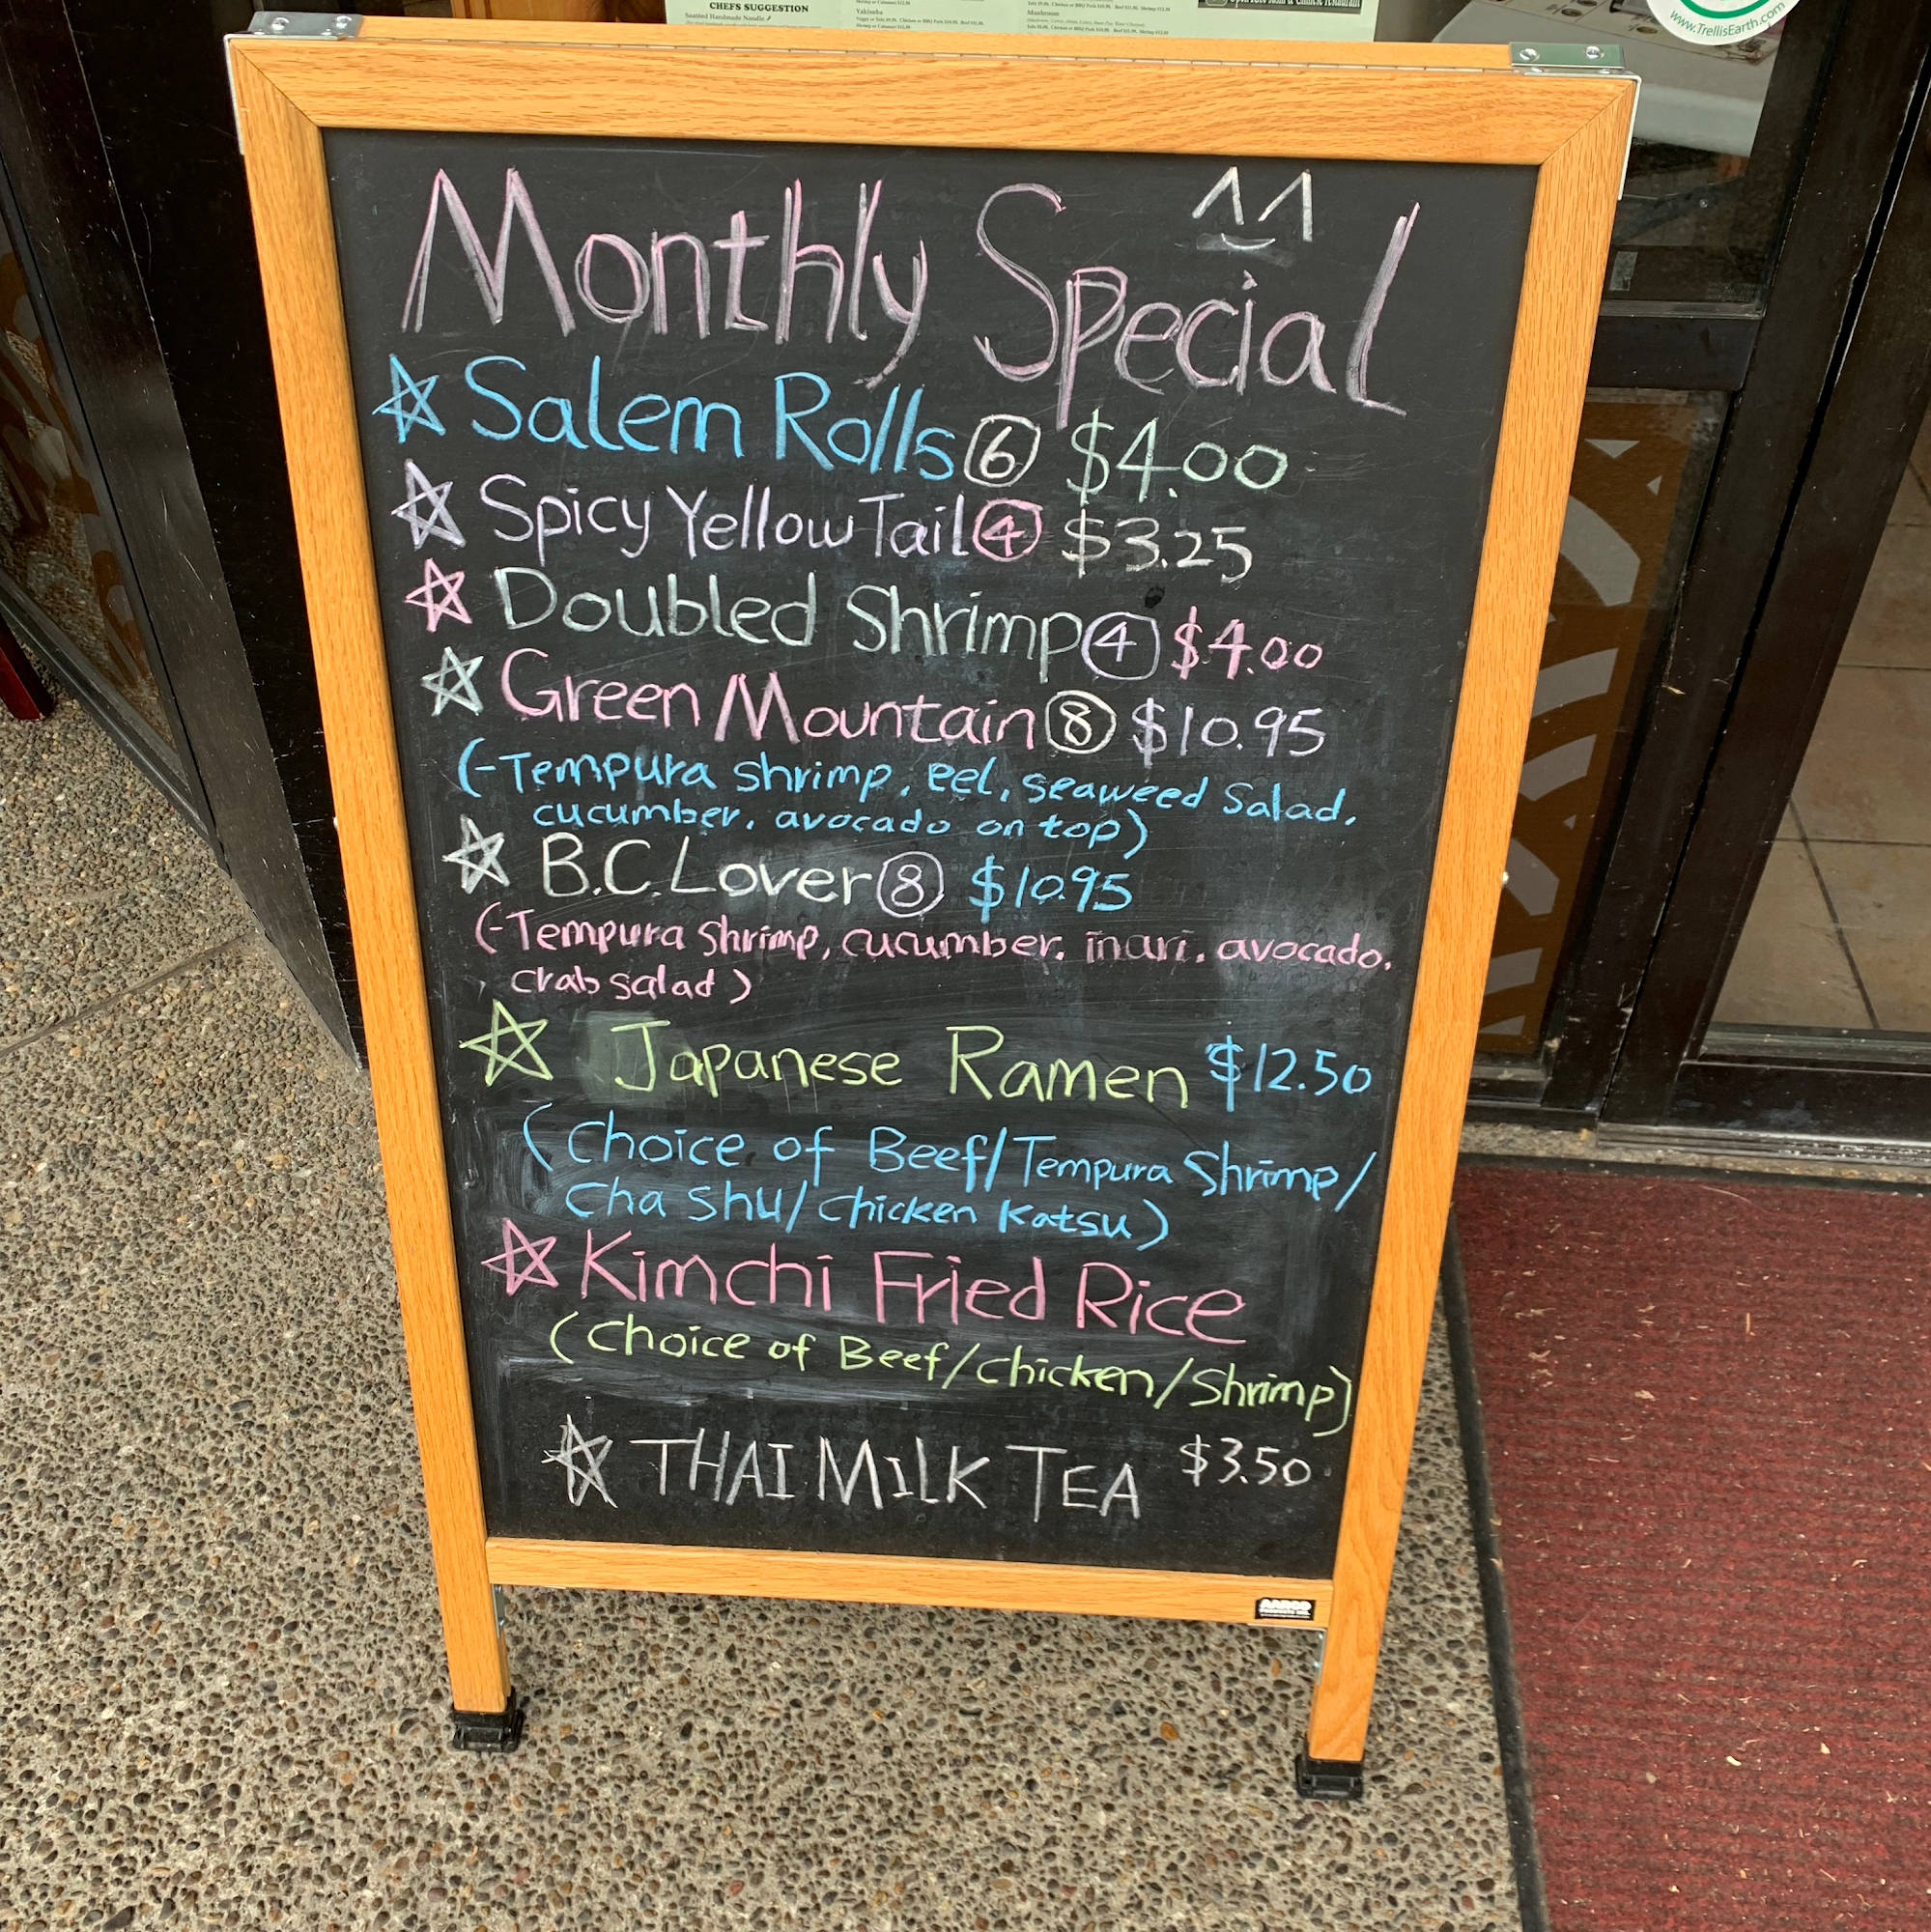 CHEFS SUGGESTION
Sautéed Handmade Noodle
Yakisoba
Mushroom
www.TrellisEarth.com
Monthly Special
^^
Salem Rolls ⑥ $4.00
Spicy Yellow Tail ④ $3.25
Doubled Shrimp ④ $4.00
Green Mountain ⑧ $10.95
(-Tempura shrimp, eel, seaweed Salad,
cucumber, avocado on top)
B.C. Lover ⑧ $10.95
(-Tempura shrimp, cucumber, inari, avocado,
crab salad)
Japanese Ramen $12.50
(Choice of Beef/Tempura Shrimp/
Cha Shu/Chicken Katsu)
Kimchi Fried Rice
(Choice of Beef/Chicken/Shrimp)
THAI MILK TEA $3.50
AARCO